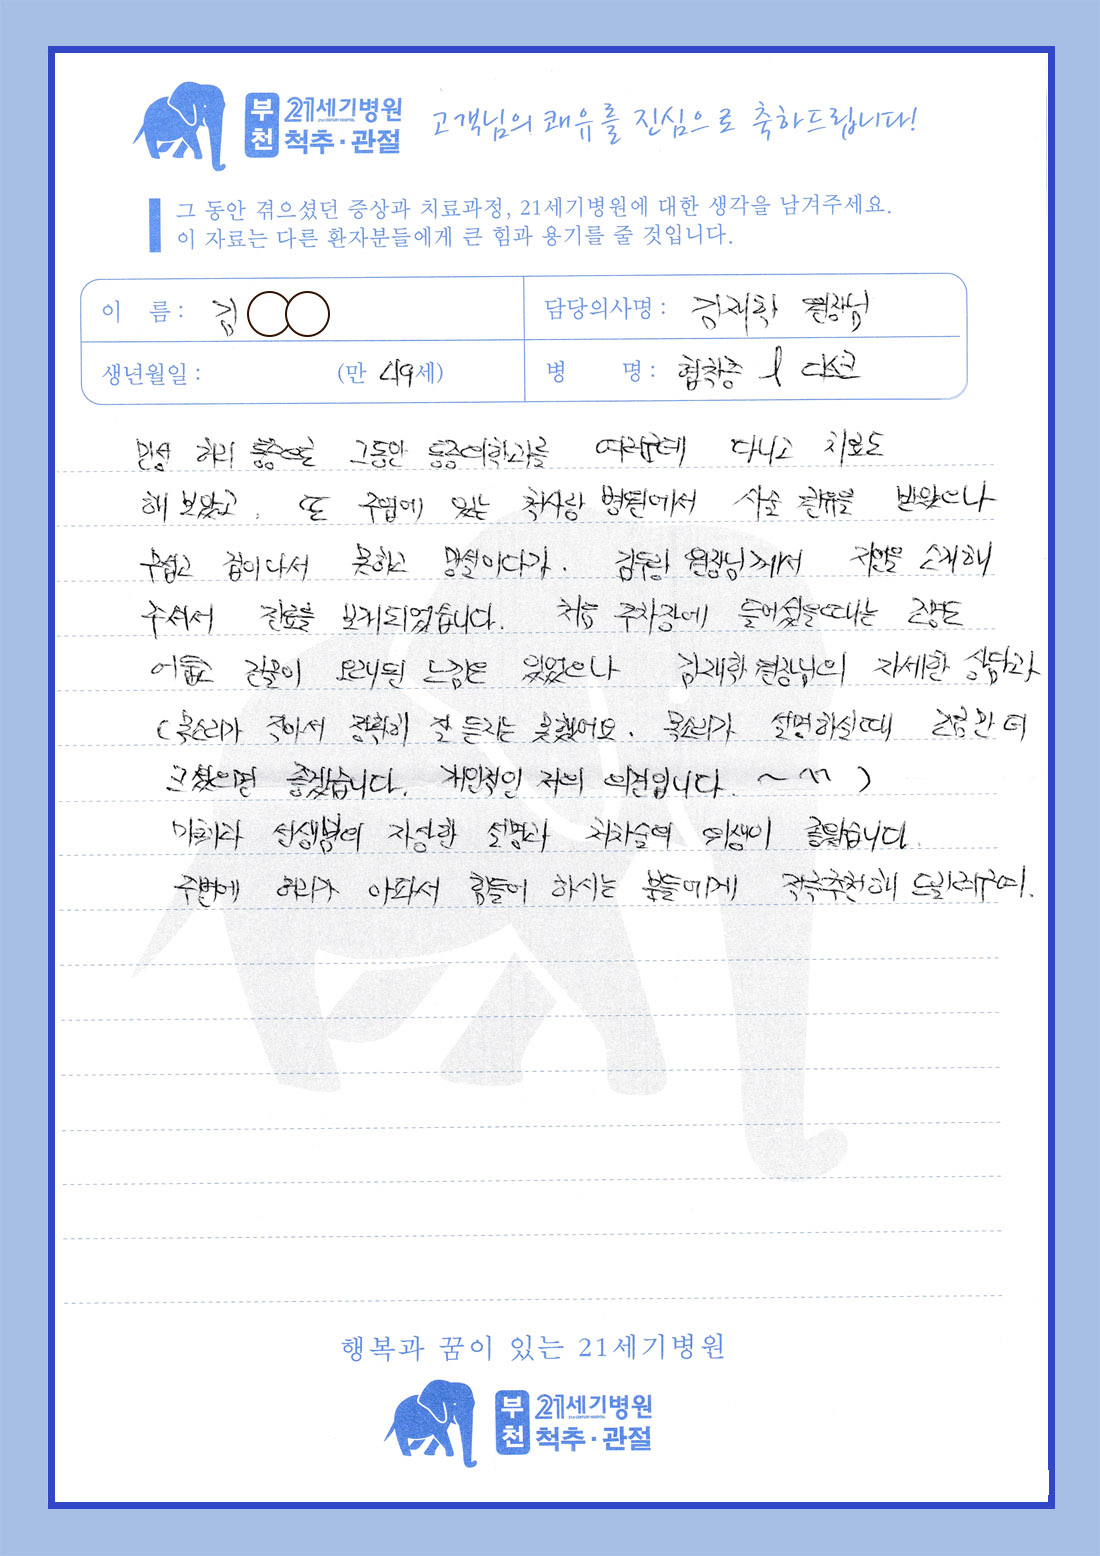 부천 21세기병원 척추·관절
21ST CENTURY HOSPITAL
고객님의 쾌유를 진심으로 축하드립니다!
그 동안 겪으셨던 증상과 치료과정, 21세기병원에 대한 생각을 남겨주세요.
이 자료는 다른 환자분들에게 큰 힘과 용기를 줄 것입니다.
이 름 : 김
담당의사명 : 김재학 원장님
생년월일 : (만 49세)
병 명 : 협착증 디스크
만성 허리 통증으로 그동안 통증의학과를 여러군데 다니고 치료도
해 보았고, 또 주변에 있는 척사랑 병원에서 시술 권유를 받았으나
무섭고 겁이나서 못하고 망설이다가. 원장님께서 지인을 소개해
주셔서 진료를 보게되었습니다. 처음 주차장에 들어섰을때는 조명도
어둡고 건물이 오래된 느낌도 있었으나 김재학 원장님의 자세한 상담과
(목소리가 작아서 정확히 잘 듣지는 못했어요. 목소리가 설명하실때 조금만 더
크셨으면 좋겠습니다. 개인적인 저의 의견입니다. ~ ^^ )
마취과 선생님의 자상한 설명과 의 이 좋았습니다.
주변에 허리가 아파서 힘들어 하시는 분들에게 적극추천해 드릴려구여.
행복과 꿈이 있는 21세기병원
부천 21세기병원 척추·관절
21ST CENTURY HOSPITAL